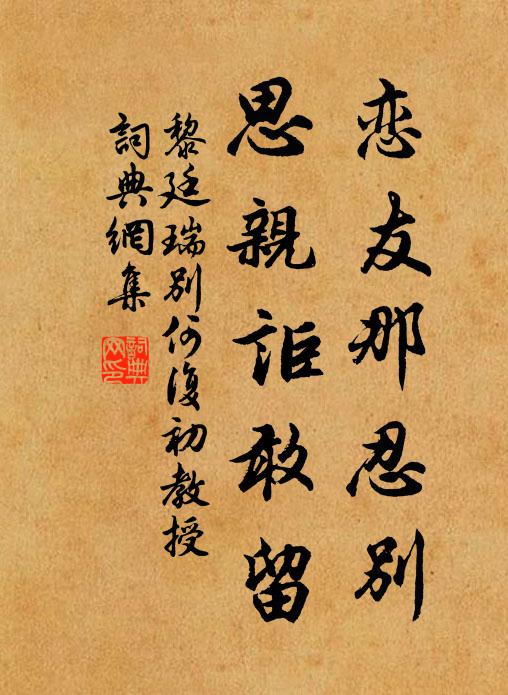 恋友那忍别
思親詎敢留
黎廷瑞别何復初教授
詞典網集
詞典
網印